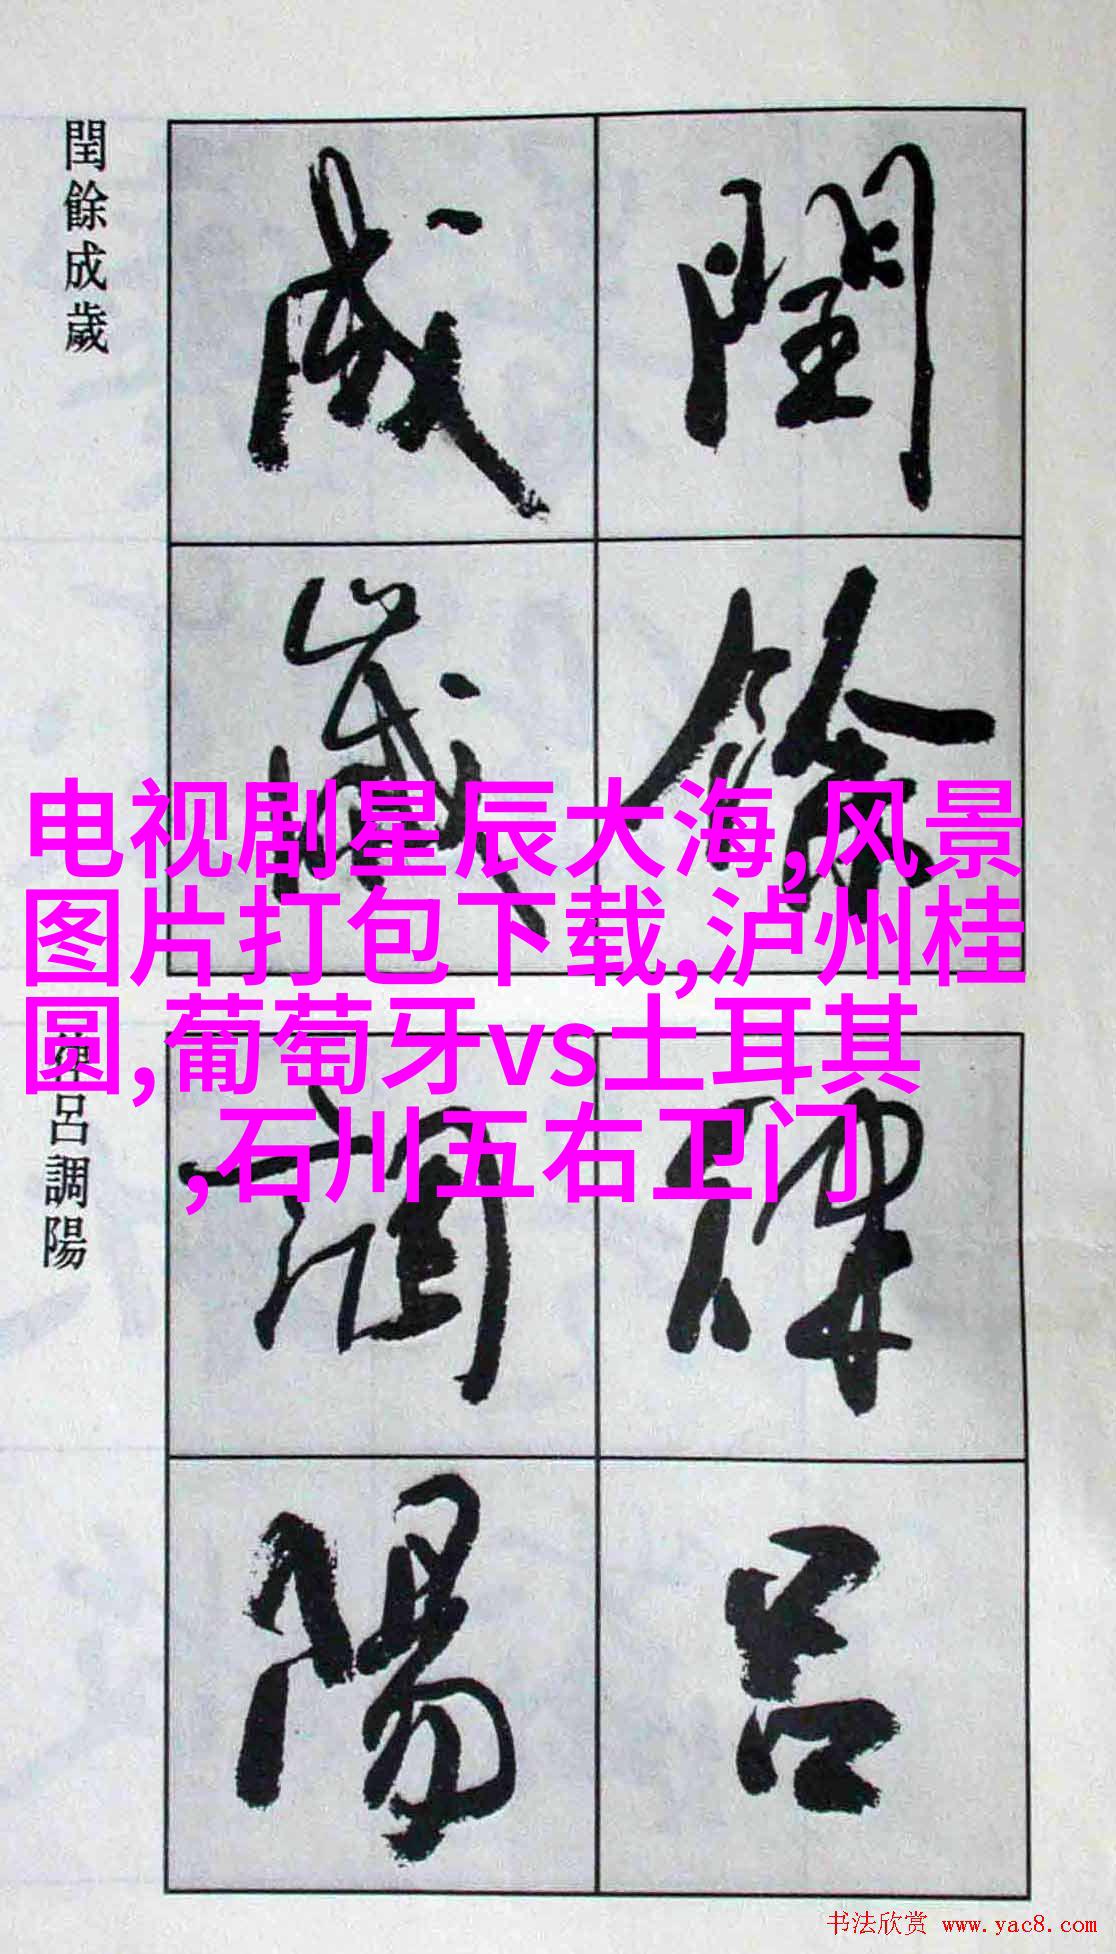 閏餘成歲
閏餘
成歲
电视剧星辰大海,风景
图片打包下载,泸州桂
圆,葡萄牙vs土耳其
,石川五右卫门
呂調陽
律呂
調陽
书法欣赏 www.yac8.com